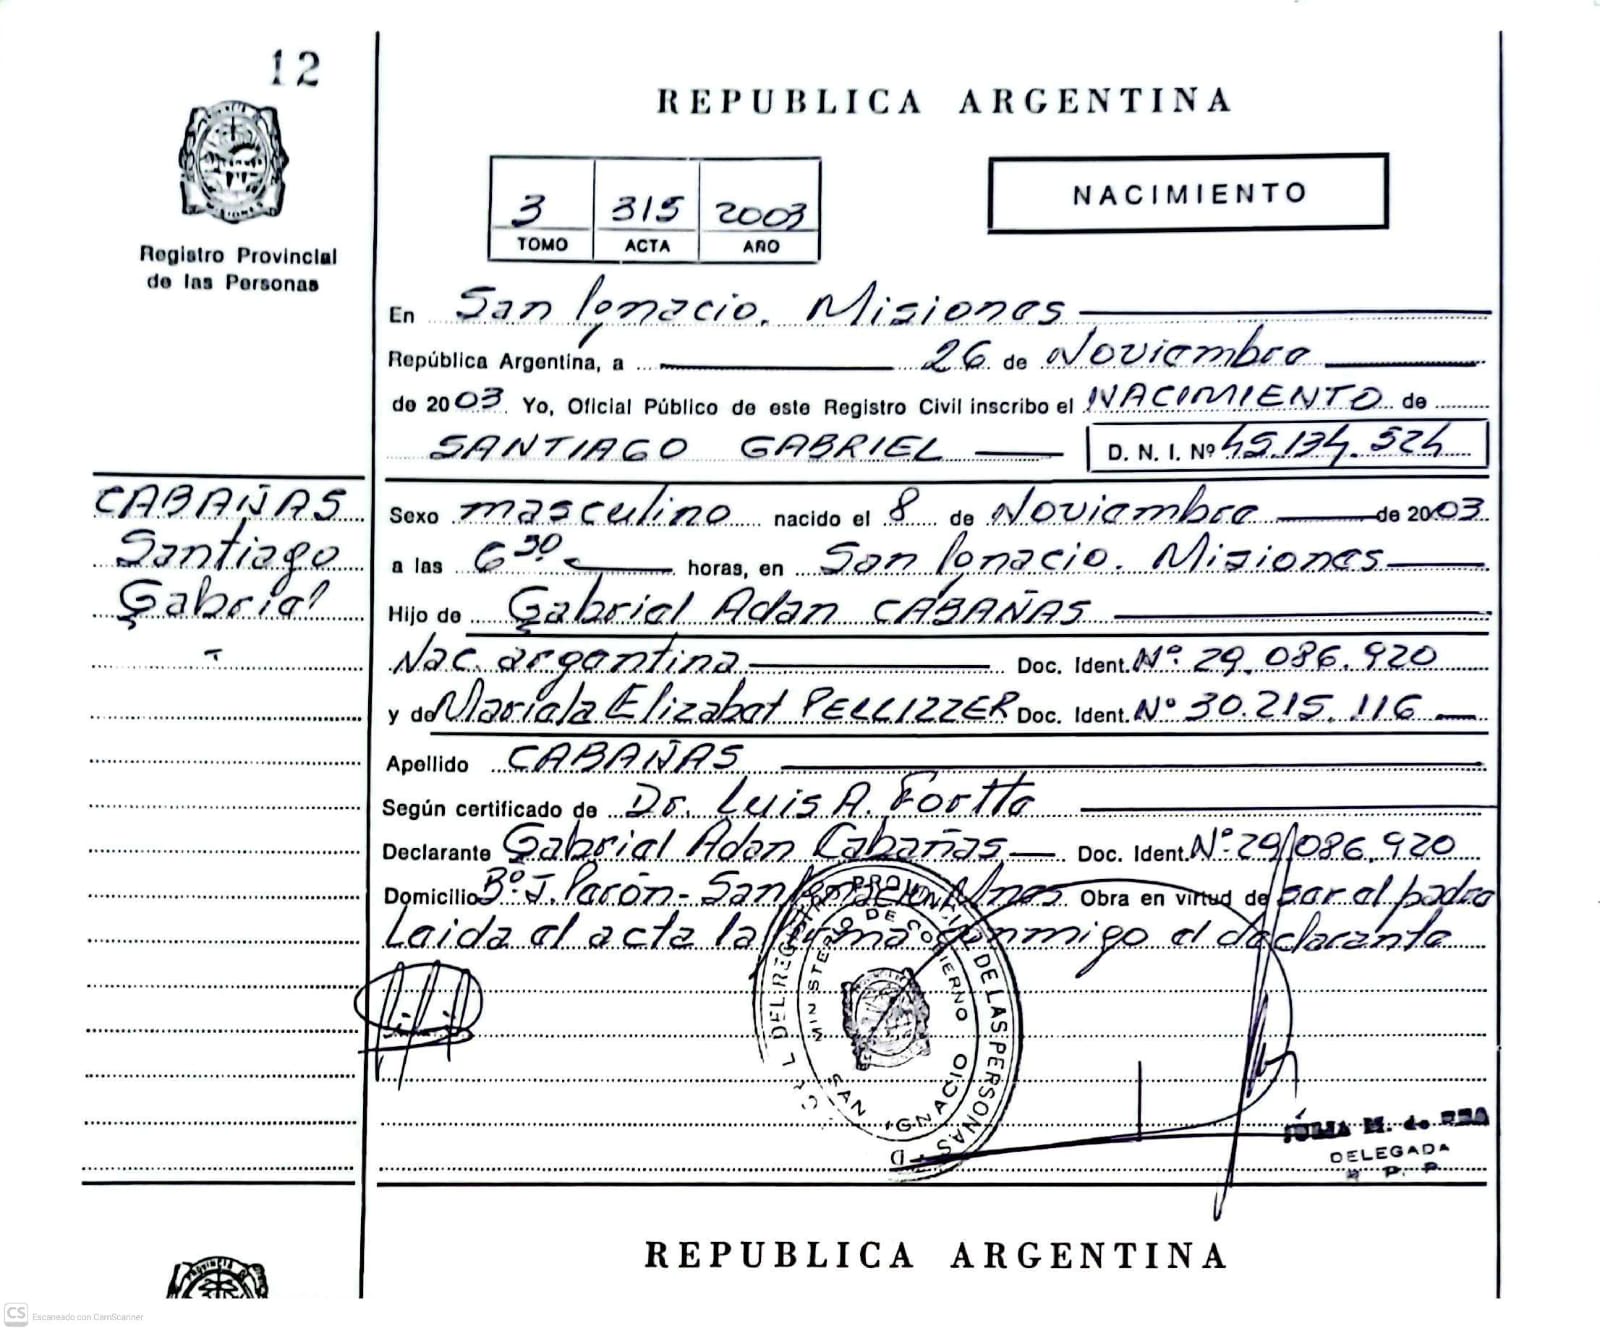 12
REPUBLICA ARGENTINA
MISIONES
Registro Provincial
de las Personas
3 315 2003
TOMO ACTA AÑO
NACIMIENTO
En San Ignacio. Misiones
República Argentina, a 26 de Noviembre
de 2003 Yo, Oficial Público de este Registro Civil inscribo el NACIMIENTO de
SANTIAGO GABRIEL D. N. I. Nº 45.134.524
CABAÑAS
Santiago
Gabriel
Sexo masculino nacido el 8 de Noviembre de 2003
a las 6 30 horas, en San Ignacio. Misiones
Hijo de Gabriel Adan CABAÑAS
Nac. argentina Doc. Ident. Nº 29.086.920
y de Mariela Elizabet PELLIZZER Doc. Ident. Nº 30.215.116
Apellido CABAÑAS
Según certificado de Dr. Luis A.
Declarante Gabriel Adan Cabañas Doc. Ident. Nº 29.086.920
Domicilio Bº J. Perón - San Ignacio Mnes Obra en virtud de ser el padre
Leida el acta la firma conmigo el declarante
DEL REGISTRO PROVINCIAL DE LAS PERSONAS
MINISTERIO DE GOBIERNO
SAN IGNACIO
M. de
DELEGADA
R. P. P.
REPUBLICA ARGENTINA
PROVINCIA DE
CS Escaneado con CamScanner